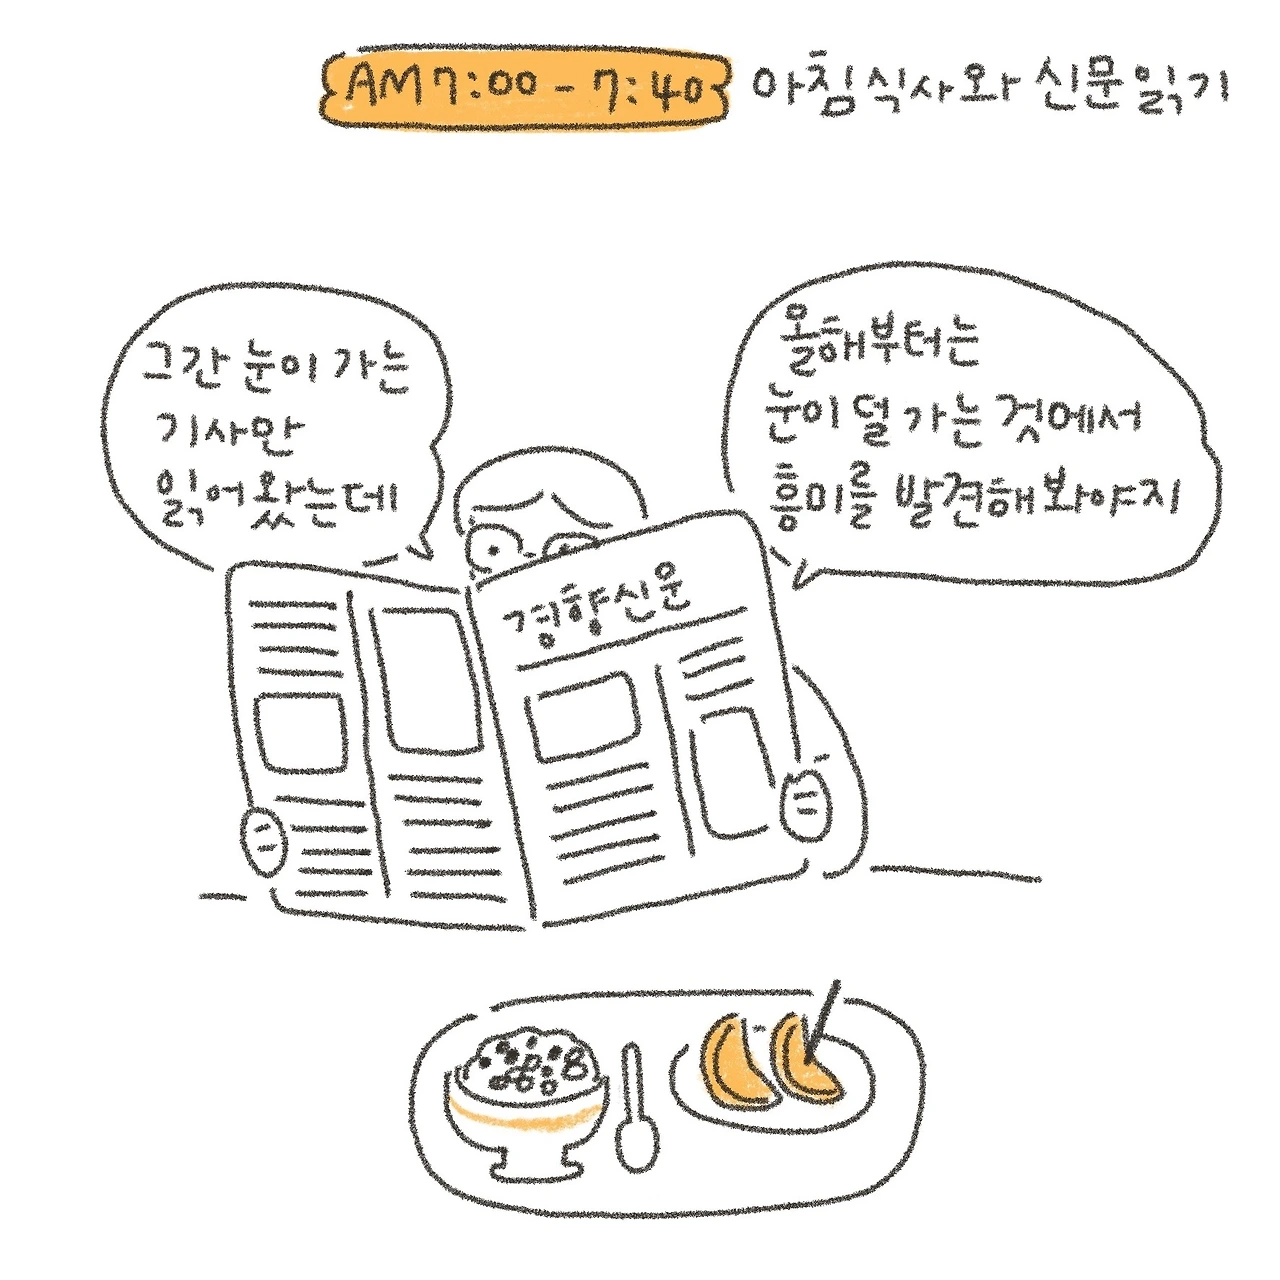 AM 7:00 - 7:40 아침식사와 신문읽기
그간 눈이 가는
기사만
읽어왔는데
올해부터는
눈이 덜 가는 것에서
흥미를 발견해봐야지
경향신문